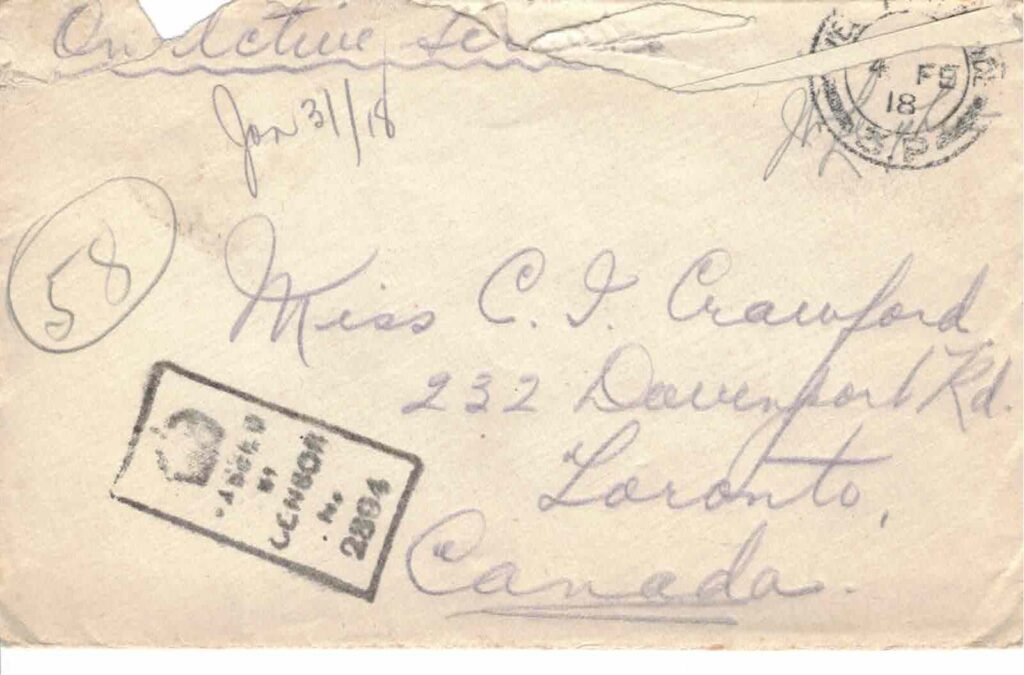 On Active Ser
Jan 31/18
4 FE
18
58
Miss C. I. Crawford
232 Davenport Rd.
Toronto,
Canada.
PASSED
BY
CENSOR
No.
2894